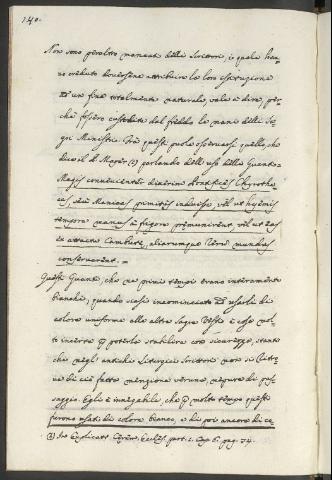 140.
Non sono peraltro mancati delli Scrittori, i quali han-
no creduto doversene attribuire la loro istituzione
ad un fine totalmente naturale, vale a dire, per-
chè fossero custodite dal freddo le mani delli Sa-
gri Ministri. Frà questi puole osservarsi quello, che
dice il de Mager (a) parlando dell'uso delle Guanta=
Magis convenienter dixerim Pontifices Chyrothe
cas seu Manicas primitus induisse, vel ut hyemis
tempore manus a frigore præmunirent, vel ut eas
ex attactu Cambutæ, aliarumque rerum mundas
conservarent. =
Questi Guanti, che ne primi tempi erano interamente
bianchi, quando siasi incominciato ad usarli di
colore uniforme alle altre Sagre Vesti è cosa mol-
to incerta p poterla stabilire con sicurezza, stante
che negl'antichi Liturgici Scrittori non si ritro
va di ciò fatta menzione veruna, neppure di pas-
saggio. Egli è innegabile, che p molto tempo questi
furono usati di colore bianco, e di poi ancora di co
(a) In Explicat. Cærem. Eccles. part. 1. Cap. 6. pag. 34.